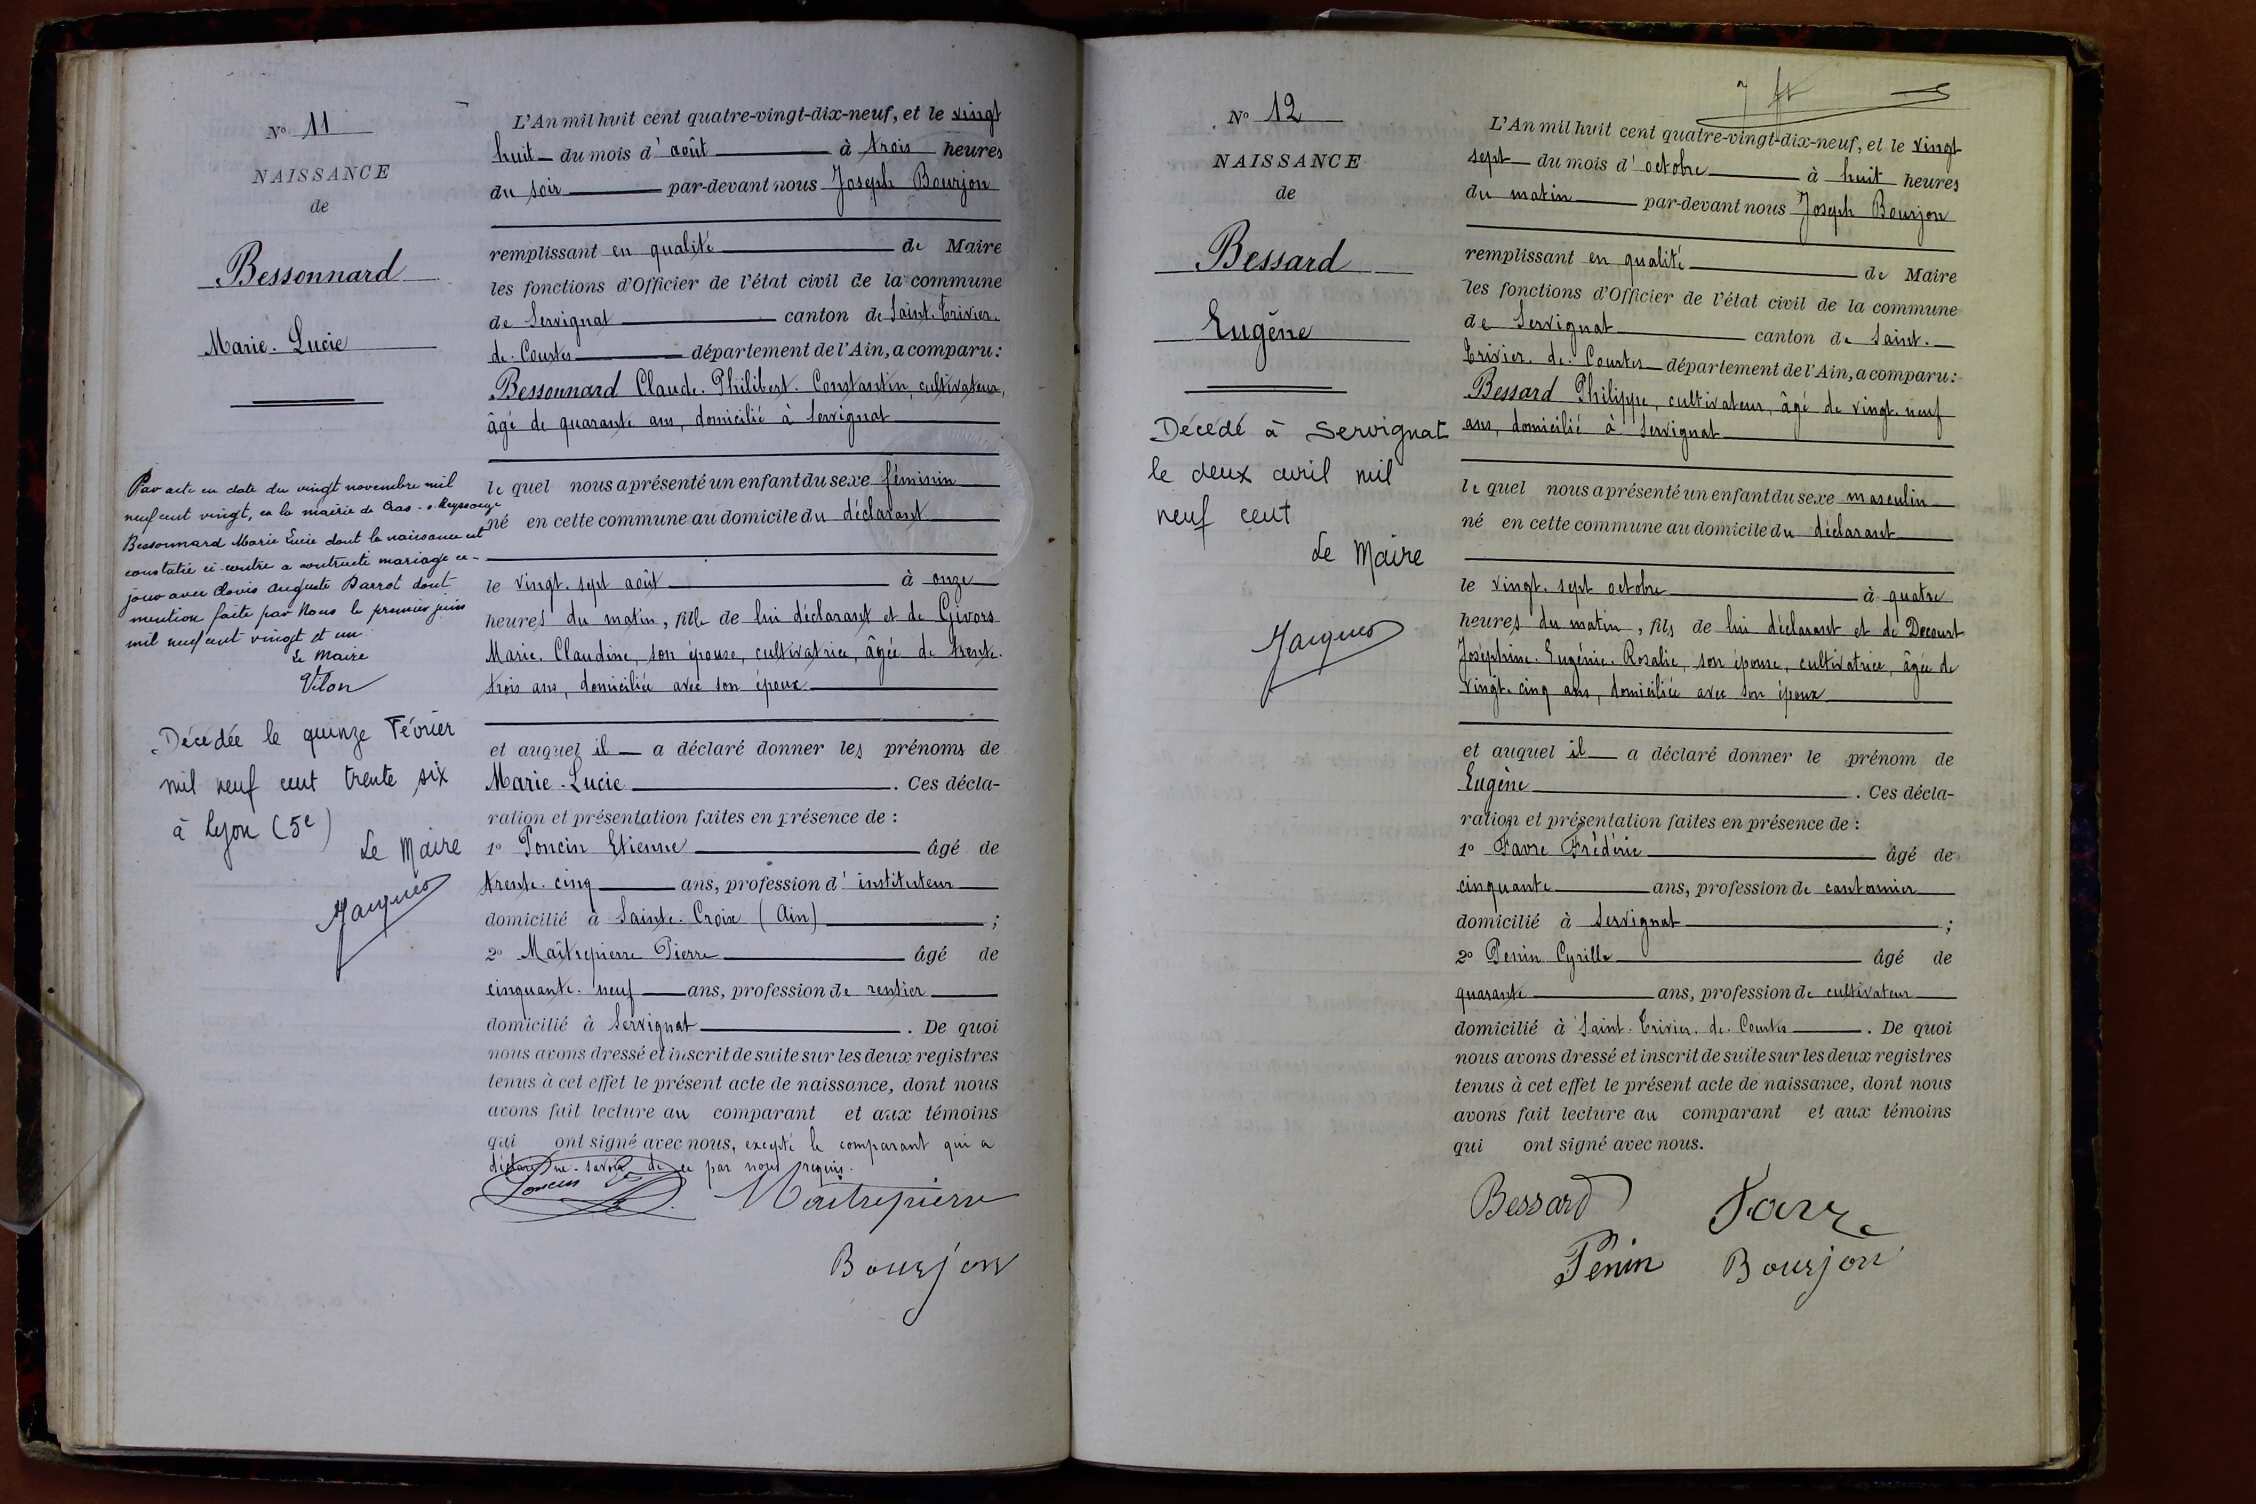 N° 11
NAISSANCE
de
Bessonnard
Marie-Lucie
Par acte en date du vingt novembre mil
neuf cent vingt, en la mairie de Cras-s-Reyssouze
Bessonnard Marie Lucie dont la naissance est
constatée ci-contre a contracté mariage ce
jour avec Clovis Auguste Barrot dont
mention faite par Nous le premier juin
mil neuf cent vingt et un
Le Maire
Vilon
Décédée le quinze Février
mil neuf cent trente six
à Lyon (5e)
Le Maire
Jacques
L'An mil huit cent quatre-vingt-dix-neuf, et le vingt
huit du mois d'août à trois heures
du soir par-devant nous Joseph Bourjon
remplissant en qualité de Maire
les fonctions d'Officier de l'état civil de la commune
de Servignat canton de Saint-Trivier-
de-Courtes département de l'Ain, a comparu:
Bessonnard Claude-Philibert-Constantin, cultivateur,
âgé de quarante ans, domicilié à Servignat
lequel nous a présenté un enfant du sexe féminin
né en cette commune au domicile du déclarant
le vingt-sept août à onze
heures du matin, fille de lui déclarant et de Givors
Marie-Claudine, son épouse, cultivatrice, âgée de trente-
trois ans, domiciliée avec son époux
et auquel il a déclaré donner les prénoms de
Marie-Lucie. Ces décla-
ration et présentation faites en présence de :
1° Poncin Etienne âgé de
trente-cinq ans, profession d'instituteur
domicilié à Sainte-Croix (Ain) ;
2° Maîtrepierre Pierre âgé de
cinquante-neuf ans, profession de rentier
domicilié à Servignat. De quoi
nous avons dressé et inscrit de suite sur les deux registres
tenus à cet effet le présent acte de naissance, dont nous
avons fait lecture au comparant et aux témoins
qui ont signé avec nous, excepté le comparant qui a
déclaré ne savoir de ce par nous requis.
Poncin Maitrepierre
Bourjon
N° 12
NAISSANCE
de
Bessard
Eugène
Décédé à Servignat
le deux avril mil
neuf cent
Le Maire
Jacques
L'An mil huit cent quatre-vingt-dix-neuf, et le vingt
sept du mois d'octobre à huit heures
du matin par-devant nous Joseph Bourjon
remplissant en qualité de Maire
les fonctions d'Officier de l'état civil de la commune
de Servignat canton de Saint-
Trivier-de-Courtes département de l'Ain, a comparu:
Bessard Philippe, cultivateur, âgé de vingt-neuf
ans, domicilié à Servignat
lequel nous a présenté un enfant du sexe masculin
né en cette commune au domicile du déclarant
le vingt-sept octobre à quatre
heures du matin, fils de lui déclarant et de Decourt
Joséphine-Eugénie-Rosalie, son épouse, cultivatrice, âgée de
vingt-cinq ans, domiciliée avec son époux
et auquel il a déclaré donner le prénom de
Eugène. Ces décla-
ration et présentation faites en présence de :
1° Favre Frédéric âgé de
cinquante ans, profession de cantonnier
domicilié à Servignat ;
2° Penin Cyrille âgé de
quarante ans, profession de cultivateur
domicilié à Saint-Trivier-de-Courtes. De quoi
nous avons dressé et inscrit de suite sur les deux registres
tenus à cet effet le présent acte de naissance, dont nous
avons fait lecture au comparant et aux témoins
qui ont signé avec nous.
Bessard Favre
Penin Bourjon